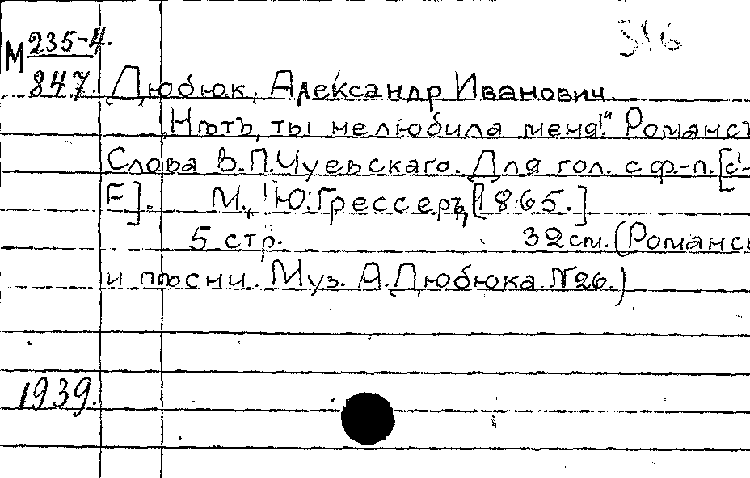 316
М 235-4.
847. Дюбюк, Александр Иванович
"Нѣтъ, ты не любила меня!" Романсъ
Слова В.П.Чуевскаго. Для гол. с ф.-п. [c'-
F]. М., Ю.Грессеръ, [1865.]
5 стр. 32 см. (Романсы
и пѣсни. Муз. А.Дюбюка. №26.)
1939.